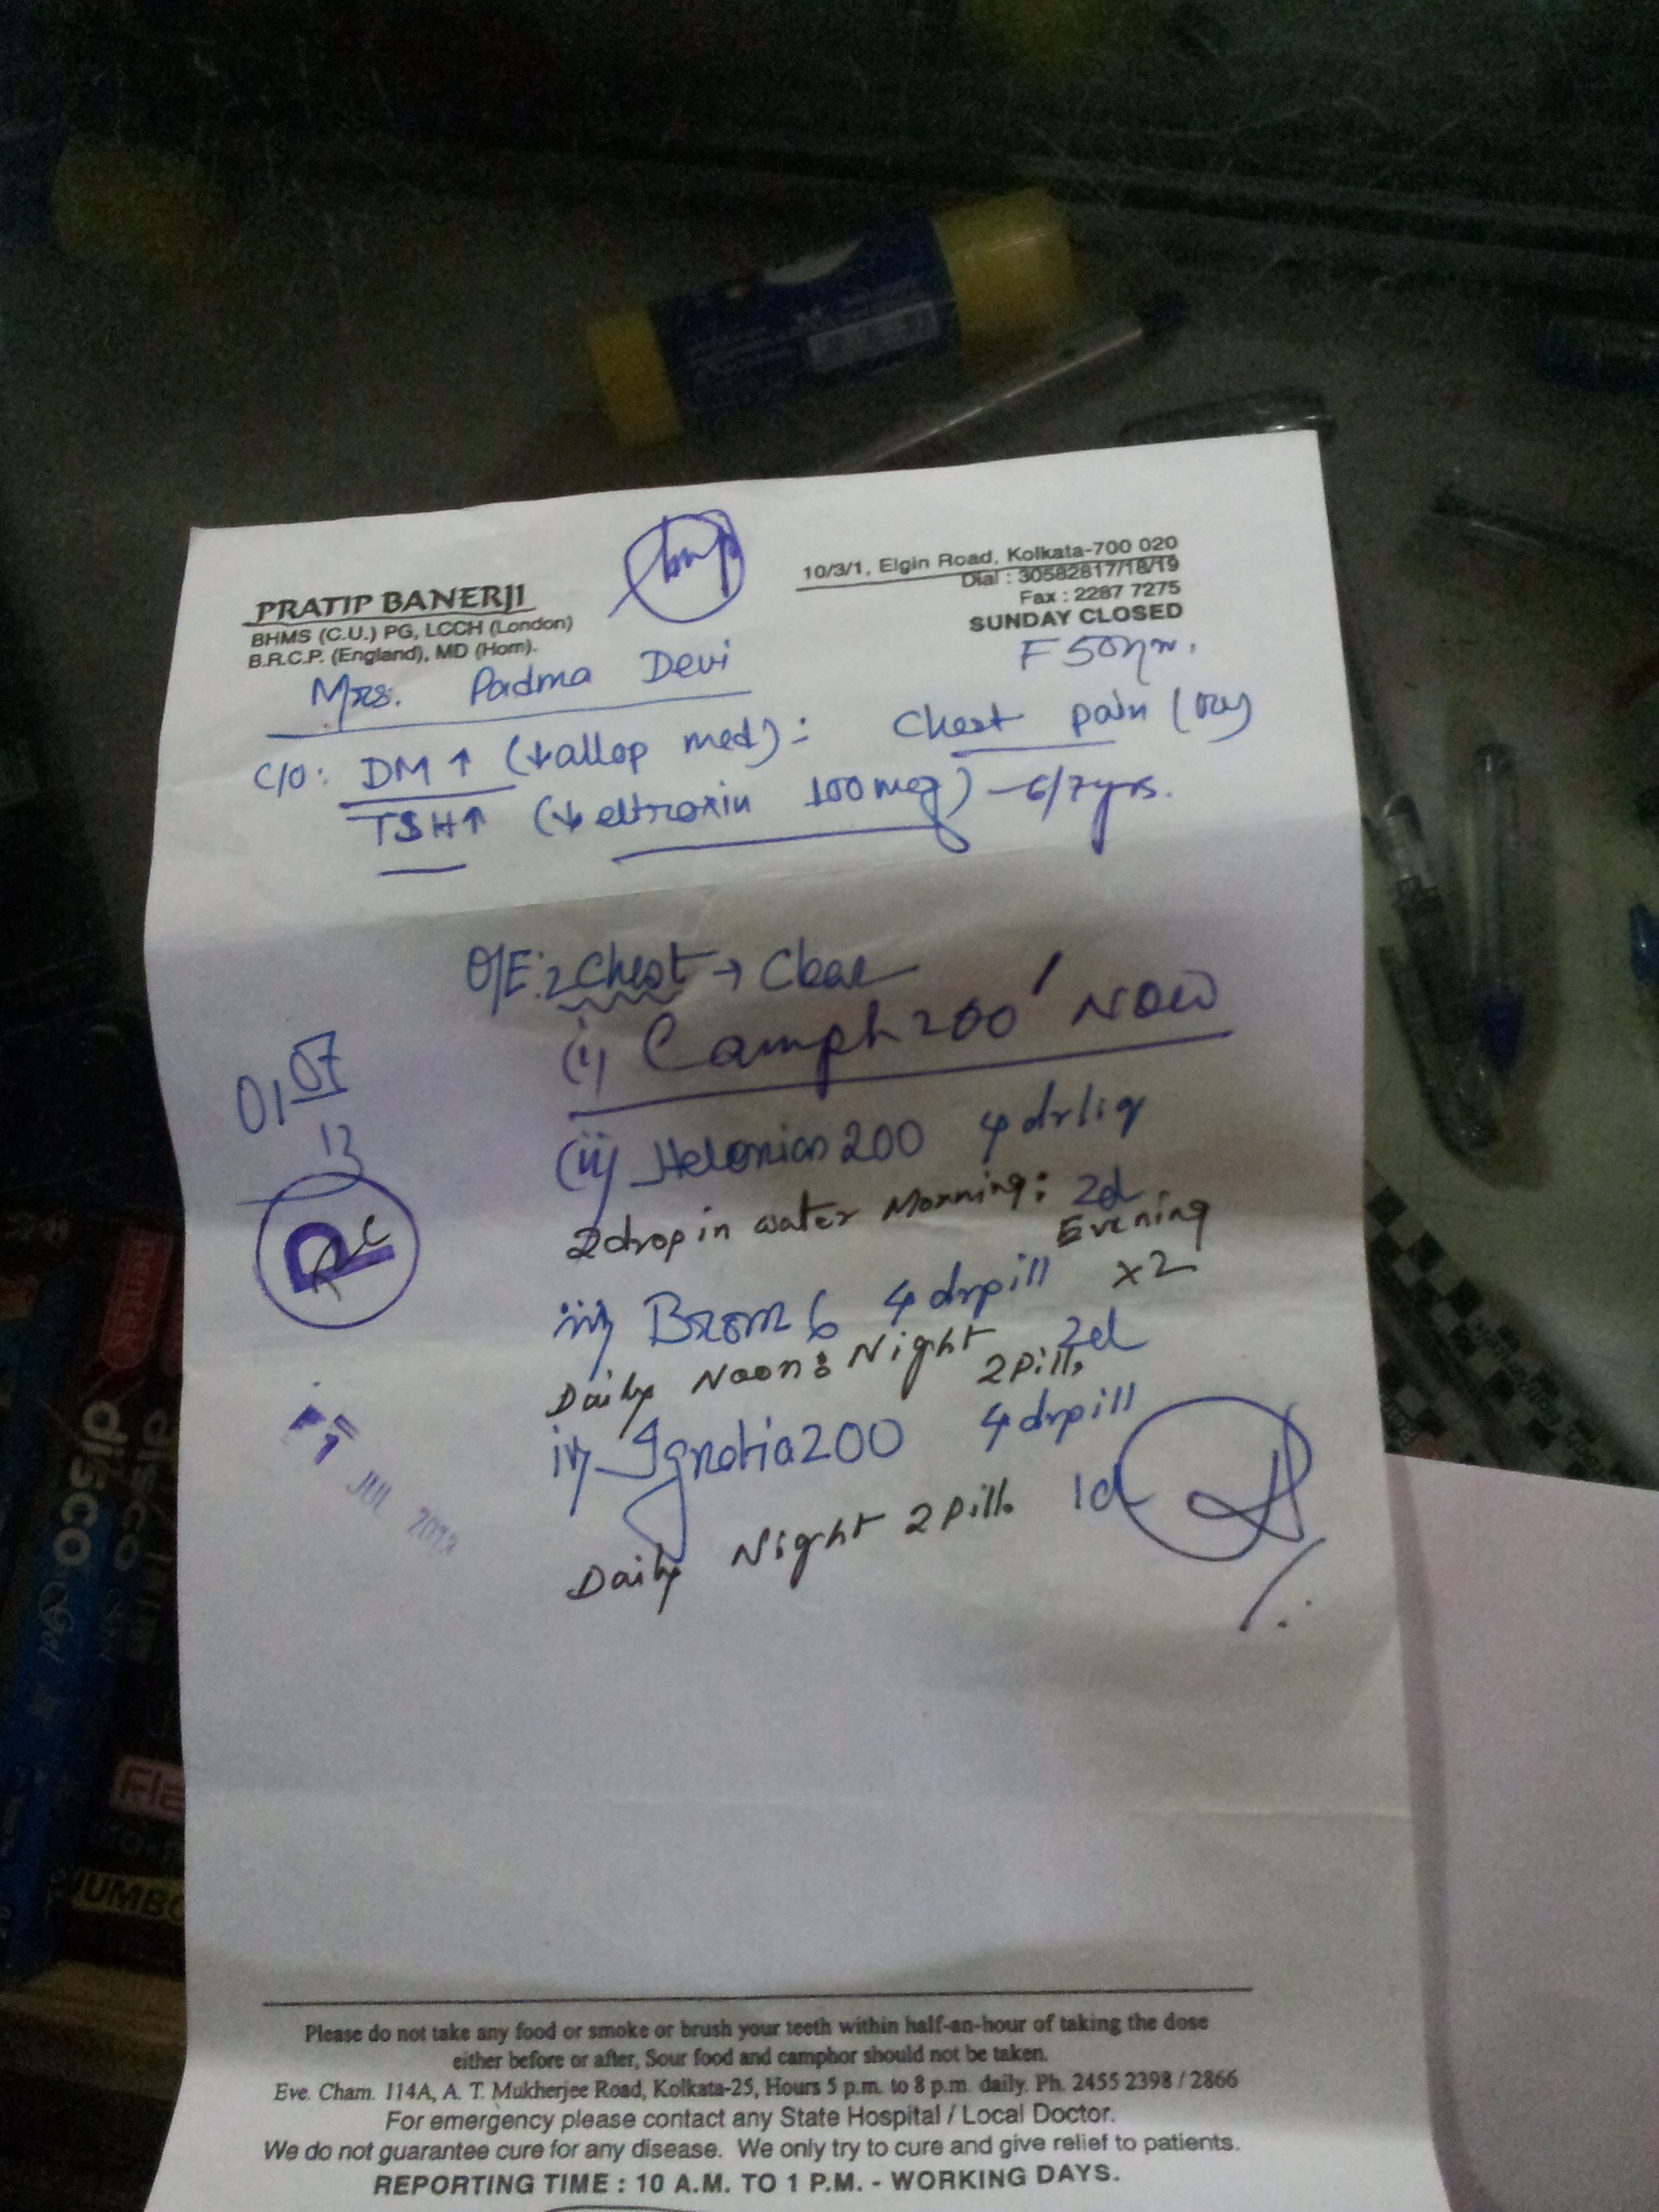 PRATIP BANERJI
BHMS (C.U.) PG, LCCH (London)
B.R.C.P. (England), MD (Hom).
10/3/1, Elgin Road, Kolkata-700 020
Dial : 30582817/18/19
Fax : 2287 7275
SUNDAY CLOSED
Mrs. Padma Devi F 50yrs.
C/O: DM ↑ (↓ allop med): Chest pain
TSH↑ (↓ eltroxin 100 mcg) - 6/7yrs.
O/E: Chest → Clear
(i) Camph 200 NOW
01 07
13
(ii) Helonias 200 4 dr liq
2 drop in water Morning: 2d
Evening
iii) Brom 6 4 dr pill x2
Daily Noon: Night 2 pills 2d
iv) Ignatia 200 4 dr pill
Daily Night 2 pills 1d
JUL 2013
disco
disco
JUMBO
Please do not take any food or smoke or brush your teeth within half-an-hour of taking the dose
either before or after, Sour food and camphor should not be taken.
Eve. Cham. 114A, A. T. Mukherjee Road, Kolkata-25, Hours 5 p.m. to 8 p.m. daily. Ph. 2455 2398 / 2866
For emergency please contact any State Hospital / Local Doctor.
We do not guarantee cure for any disease. We only try to cure and give relief to patients.
REPORTING TIME : 10 A.M. TO 1 P.M. - WORKING DAYS.